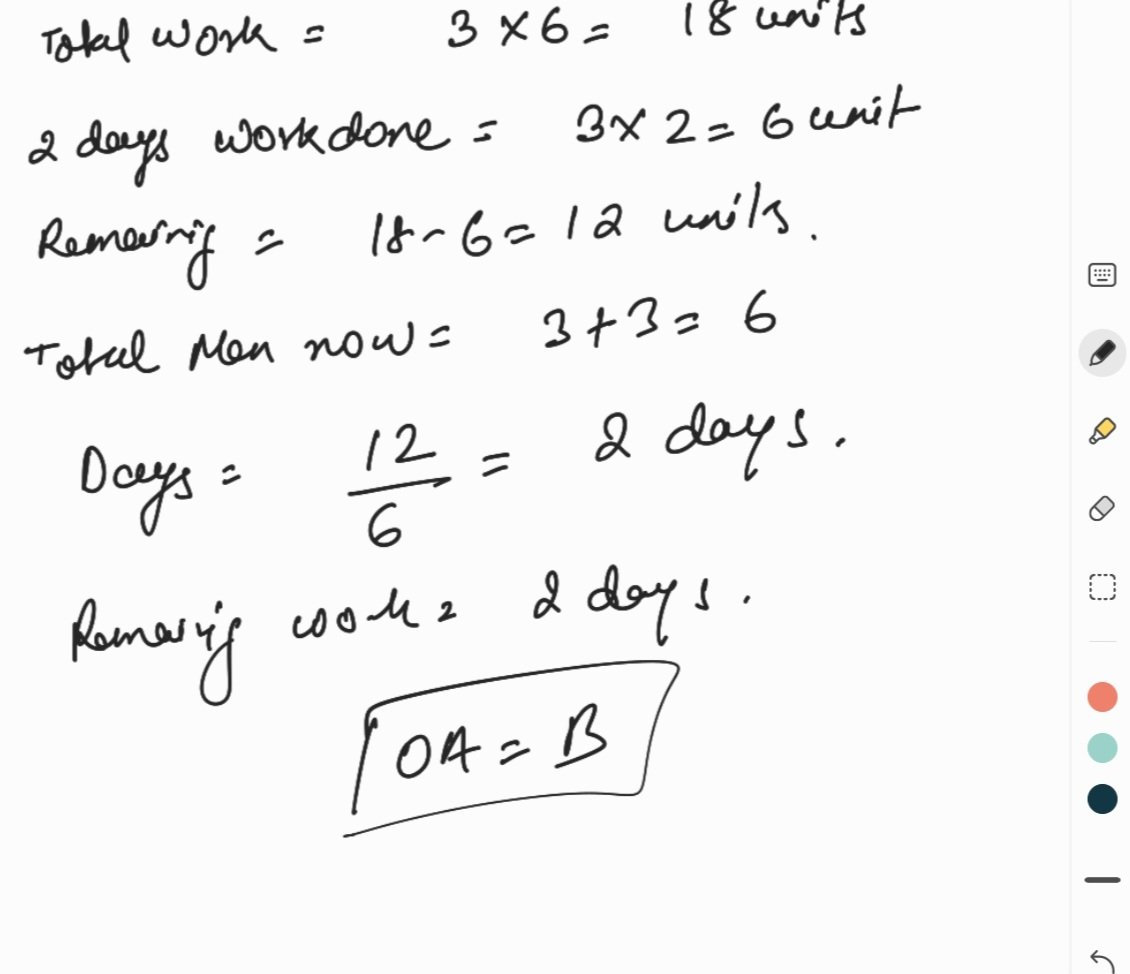 Total work = 3 × 6 = 18 units
2 days workdone = 3 × 2 = 6 unit
Remaining = 18 - 6 = 12 units.
Total Men now = 3 + 3 = 6
Days = 12/6 = 2 days.
Remaing work = 2 days.
OA = B